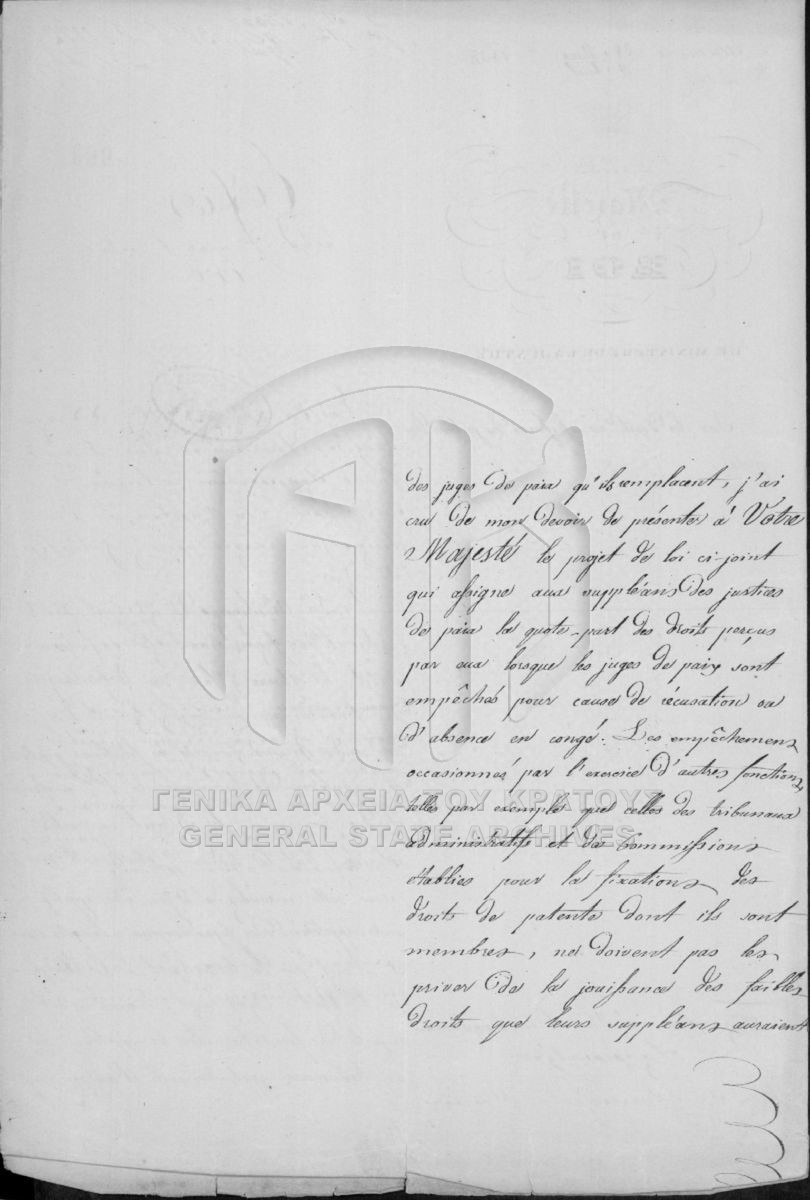 des juges de paix qu'ils remplacent, j'ai
cru de mon devoir de présenter à Votre
Majesté le projet de loi ci-joint
qui assigne aux suppléans des justices
de paix la quote-part des droits perçus
par eux lorsque les juges de paix sont
empêchés pour cause de récusation ou
d'absence en congé. Les empêchemens
occasionnés par l'exercice d'autres fonctions,
telles par exemple que celles des tribunaux
administratifs et des Commissions
établies pour la fixation des
droits de patente dont ils sont
membres, ne doivent pas les
priver de la jouissance des faibles
droits que leurs suppléans auraient
ΓΕΝΙΚΑ ΑΡΧΕΙΑ ΤΟΥ ΚΡΑΤΟΥΣ
GENERAL STATE ARCHIVES